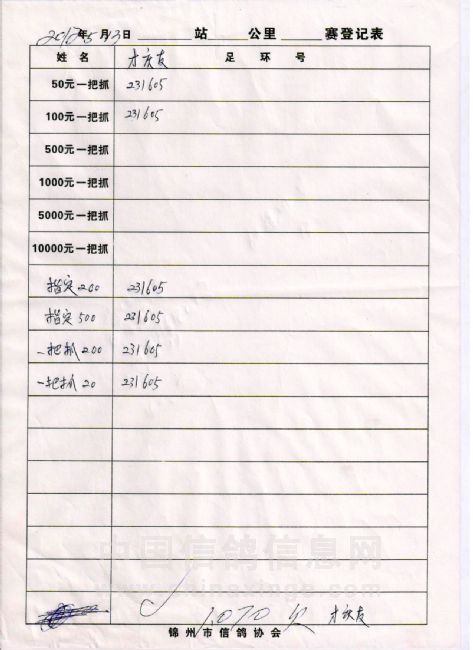 2012年5月13日 站 公里 赛登记表
姓名 才庆友 足环号
50元一把抓 231605
100元一把抓 231605
500元一把抓
1000元一把抓
5000元一把抓
10000元一把抓
指定200 231605
指定500 231605
一把抓200 231605
一把抓20 231605
中国信鸽信息网
www.chinaxinge.com
1070 欠 才庆友
锦州市信鸽协会